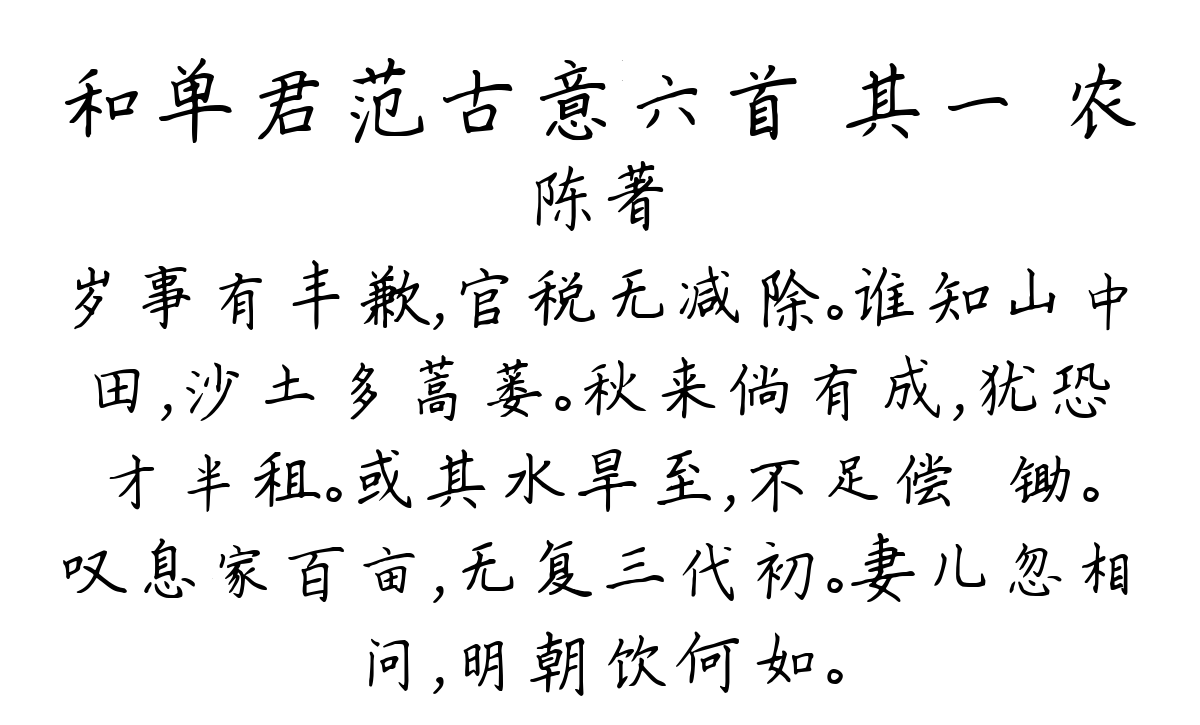 和单君范古意六首 其一 农
陈著
岁事有丰歉,官税无减除。谁知山中
田,沙土多蒿蒌。秋来倘有成,犹恐
才半租。或其水旱至,不足偿 锄。
叹息家百亩,无复三代初。妻儿忽相
问,明朝饮何如。